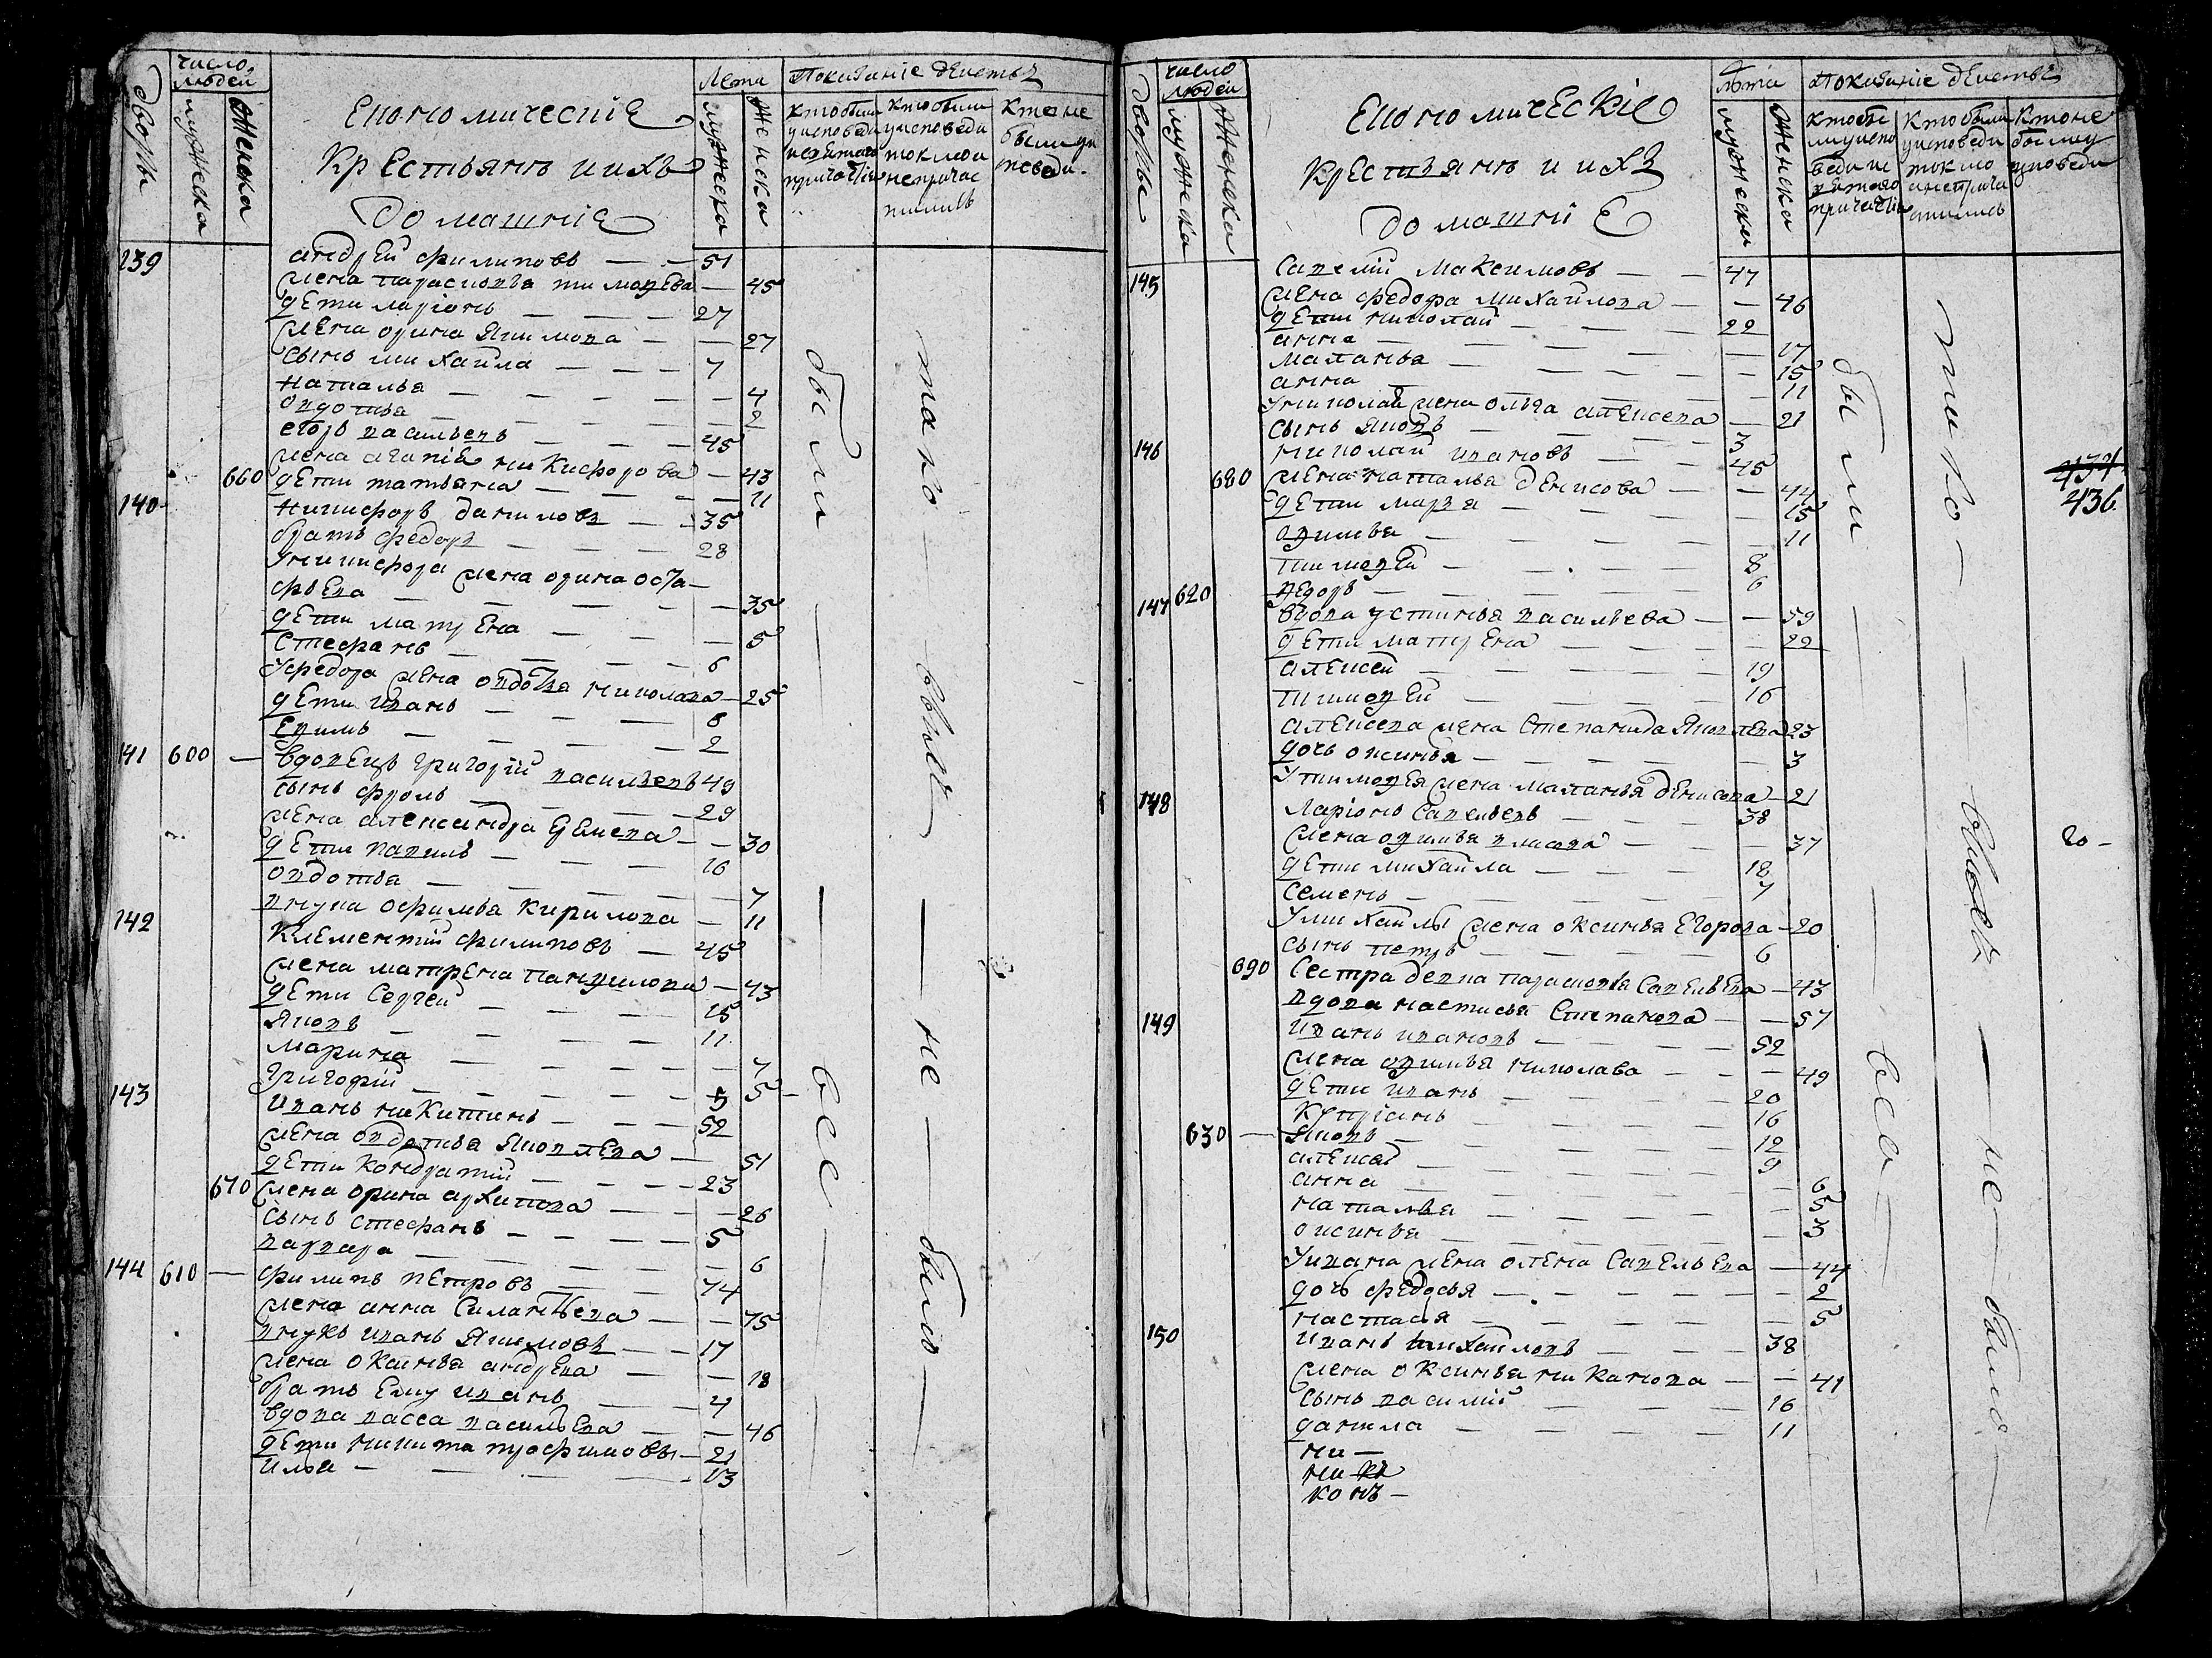 дворы
число людей
мужеска
женска
Економические
крестьянъ и ихъ
домашние
Лета
мужеска
женска
Показание действъ
кто были у исповеди и святаго причастия
кто были у исповеди токмо и не причастились
кто не были у исповеди
239 андрей филиповъ — 51
жена парасковья тимофева — 45
дети ларионъ — 27
жена орина якимова — 27
сынъ михайла — 7
наталья — 4
овдотья — 2
егоръ васильевъ — 45
жена агапие никифорова — 43
660 дети татьяна — 11
140 никифоръ даниловъ — 35
братъ федоръ — 28
у никифора жена орина оста-
фьева — 35
дети матрена — 5
стефанъ — 6
у федора жена овдотья николава — 25
дети иванъ — 8
евимъ — 2
141 600 — вдовецъ григорий васильевъ 49
сынъ фролъ — 29
жена александра — 30
дети вавилъ — 16
овдотья — 7
внука офимья кирилова — 11
142 клементий филиповъ — 45
жена матрена панфилова — 43
дети сергей — 15
яковъ — 11
марина — 7
григорий — 5
143 иванъ никитинъ — 52
жена овдотья яковлева — 51
дети кондратий — 23
670 жена орина архипова — 26
сынъ стефанъ — 5
варвара — 6
144 610 — филипъ петровъ — 74
жена анна силантьева — 75
внукъ иванъ якимовъ — 17
жена оксинья андрева — 18
братъ ему иванъ — 4
вдова васса васильева — 46
дети никита трофимовы — 21
илья — 13
были — — все —
тако — выхъ — не — было —
дворы
число людей
мужеска
женска
Економические
крестьянъ и ихъ
домашние
лета
мужеска
женска
Показание действъ
кто были у исповеди и святаго причастия
кто были у исповеди токмо а не причастились
кто не были у исповеди
145 савелий максимовъ — 47
жена федора михайлова — 46
дети николай — 22
анна — 17
маланья — 15
анна — 11
у николай жена ольга алексева — 21
сынъ яковъ — 3
146 николай ивановъ — 45
680 жена наталья денисова — 44
дети марья — 15
офимья — 11
тимофей — 8
федоръ — 6
147 620 вдова устинья васильева — 59
дети матрена — 22
алексей — 19
тимофей — 16
алексева жена степанида яковлева 23
дочь оксинья — 3
у тимофея жена маланья денисова — 21
148 ларионъ савельевъ — 38
жена офимья власова — 37
дети михайла — 18
семенъ — 7
у михайлы жена оксинья егорова — 20
сынъ петръ — 6
690 сестра девка парасковья савельева — 43
вдова настасья степанова — 57
149 иванъ ивановъ — 52
жена офимья николава — 49
дети иванъ — 20
куприянъ — 16
630 — яковъ — 12
алексей — 9
анна — 6
наталья — 5
оксинья — 3
у ивана жена олена савельева — 44
дочь федосья — 2
настасья — 5
150 иванъ михайловъ — 38
жена оксинья никанова — 41
сынъ василий — 16
данила — 11
ни —
ни
конъ —
были — — вса —
тако — — выхъ — не — было —
434
436
20 —